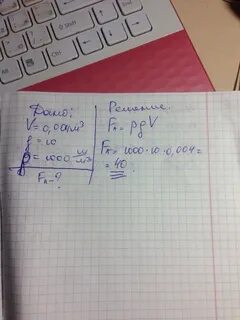 Дано:
V = 0,004 м³
g = 10
ρ = 1000 кг/м³
Fₐ - ?
Решение.
Fₐ = ρgV
Fₐ = 1000·10·0,004 =
= 40